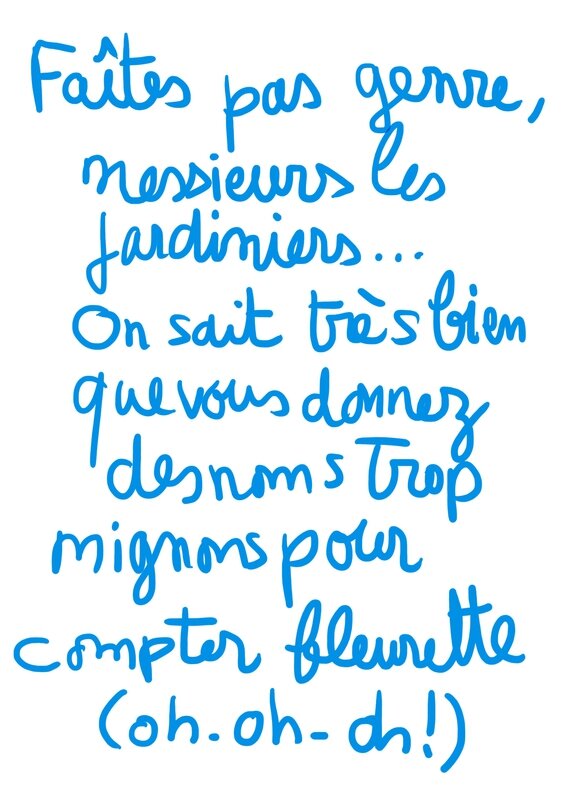 Faîtes pas genre,
messieurs les
jardiniers...
On sait très bien
que vous donnez
des noms trop
mignons pour
compter fleurette
(oh-oh-oh!)